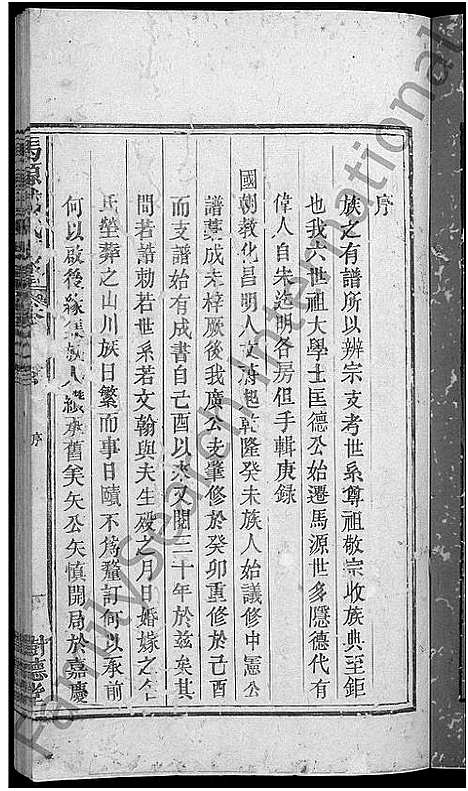 序
族之有譜所以辨宗支考世系尊祖敬宗收族典至鉅
也我六世祖大學士匡德公始遷馬源世多隱德代有
偉人自宋迄明各房但手輯庚錄
國朝教化昌明人文蔚起乾隆癸未族人始議修申憲公
譜藁成未梓厥後我廣公支肇修於癸卯重修於己酉
而支譜始有成書自己酉以來又閱三十年於茲矣其
間若誥勅若世系若文翰與夫生歿之月日婚嫁之
氏塋葬之山川族日繁而事日賾不為釐訂何以承前
何以啟後緣集族人纘承舊矣矢公矢慎開局於嘉慶
馬源
序
樹德堂
FamilySearch International